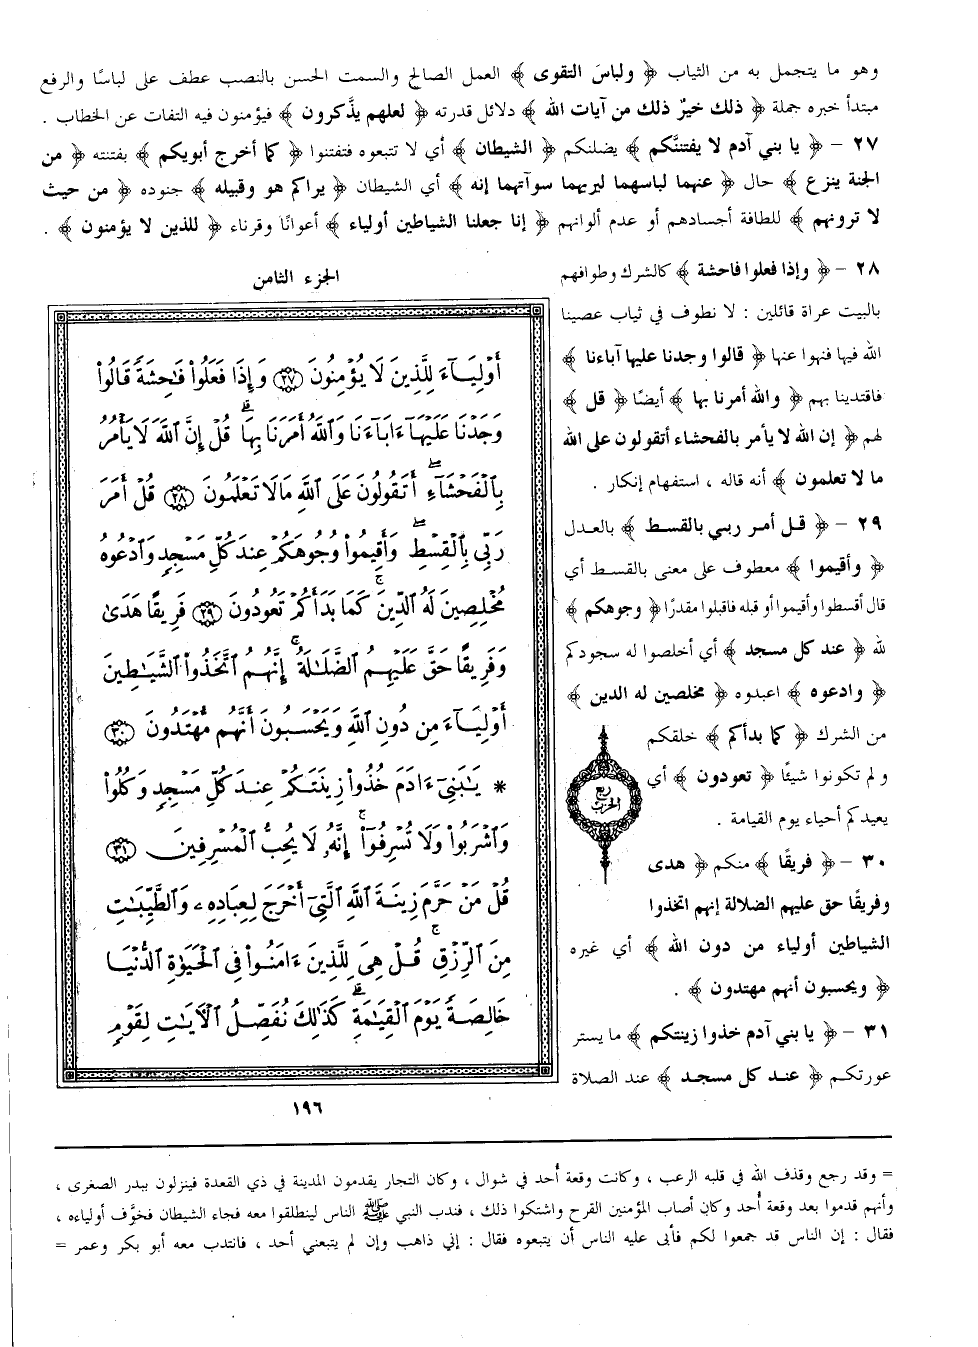 وهو ما يتجمل به من الثياب ﴿ ولباسَ التقوى ﴾ العمل الصالح والسمت الحسن بالنصب عطف على لباسًا والرفع
مبتدأ خبره جملة ﴿ ذلك خيرٌ ذلك من آيات الله ﴾ دلائل قدرته ﴿ لعلهم يذَّكرون ﴾ فيؤمنون فيه التفات عن الخطاب .
٢٧ – ﴿ يا بني آدم لا يفتننَّكم ﴾ يضلنكم ﴿ الشيطان ﴾ أي لا تتبعوه فتفتنوا ﴿ كما أخرج أبويكم ﴾ بفتنته ﴿ من
الجنة ينزع ﴾ حال ﴿ عنهما لباسهما ليريهما سوآتهما إنه ﴾ أي الشيطان ﴿ يراكم هو وقبيله ﴾ جنوده ﴿ من حيث
لا ترونهم ﴾ للطافة أجسادهم أو عدم ألوانهم ﴿ إنا جعلنا الشياطين أولياء ﴾ أعوانًا وقرناء ﴿ للذين لا يؤمنون ﴾ .
٢٨ – ﴿ وإذا فعلوا فاحشة ﴾ كالشرك وطوافهم
بالبيت عراة قائلين : لا نطوف في ثياب عصينا
الله فيها فنهوا عنها ﴿ قالوا وجدنا عليها آباءنا ﴾
فاقتدينا بهم ﴿ والله أمرنا بها ﴾ أيضًا ﴿ قل ﴾
لهم ﴿ إن الله لا يأمر بالفحشاء أتقولون على الله
ما لا تعلمون ﴾ أنه قاله ، استفهام إنكار .
٢٩ – ﴿ قل أمر ربي بالقسط ﴾ بالعدل
﴿ وأقيموا ﴾ معطوف على معنى بالقسط أي
قال أقسطوا وأقيموا أو قبله فاقبلوا مقدرًا ﴿ وجوهكم ﴾
لله ﴿ عند كل مسجد ﴾ أي أخلصوا له سجودكم
﴿ وادعوه ﴾ اعبدوه ﴿ مخلصين له الدين ﴾
من الشرك ﴿ كما بدأكم ﴾ خلقكم
ولم تكونوا شيئًا ﴿ تعودون ﴾ أي
يعيدكم أحياء يوم القيامة .
٣٠ – ﴿ فريقًا ﴾ منكم ﴿ هدى
وفريقًا حق عليهم الضلالة إنهم اتخذوا
الشياطين أولياء من دون الله ﴾ أي غيره
﴿ ويحسبون أنهم مهتدون ﴾ .
٣١ – ﴿ يا بني آدم خذوا زينتكم ﴾ ما يستر
عورتكم ﴿ عند كل مسجد ﴾ عند الصلاة
ربع
الحزب
الجزء الثامن
أَوْلِيَآءَ لِلَّذِينَ لَا يُؤْمِنُونَ ﴿٢٧﴾ وَإِذَا فَعَلُوا۟ فَـٰحِشَةً قَالُوا۟
وَجَدْنَا عَلَيْهَآ ءَابَآءَنَا وَٱللَّهُ أَمَرَنَا بِهَا ۗ قُلْ إِنَّ ٱللَّهَ لَا يَأْمُرُ
بِٱلْفَحْشَآءِ ۖ أَتَقُولُونَ عَلَى ٱللَّهِ مَا لَا تَعْلَمُونَ ﴿٢٨﴾ قُلْ أَمَرَ
رَبِّى بِٱلْقِسْطِ ۖ وَأَقِيمُوا۟ وُجُوهَكُمْ عِندَ كُلِّ مَسْجِدٍ وَٱدْعُوهُ
مُخْلِصِينَ لَهُ ٱلدِّينَ ۚ كَمَا بَدَأَكُمْ تَعُودُونَ ﴿٢٩﴾ فَرِيقًا هَدَىٰ
وَفَرِيقًا حَقَّ عَلَيْهِمُ ٱلضَّلَـٰلَةُ ۚ إِنَّهُمُ ٱتَّخَذُوا۟ ٱلشَّيَـٰطِينَ
أَوْلِيَآءَ مِن دُونِ ٱللَّهِ وَيَحْسَبُونَ أَنَّهُم مُّهْتَدُونَ ﴿٣٠﴾
* يَـٰبَنِىٓ ءَادَمَ خُذُوا۟ زِينَتَكُمْ عِندَ كُلِّ مَسْجِدٍ وَكُلُوا۟
وَٱشْرَبُوا۟ وَلَا تُسْرِفُوٓا۟ ۚ إِنَّهُۥ لَا يُحِبُّ ٱلْمُسْرِفِينَ ﴿٣١﴾
قُلْ مَنْ حَرَّمَ زِينَةَ ٱللَّهِ ٱلَّتِىٓ أَخْرَجَ لِعِبَادِهِۦ وَٱلطَّيِّبَـٰتِ
مِنَ ٱلرِّزْقِ ۚ قُلْ هِىَ لِلَّذِينَ ءَامَنُوا۟ فِى ٱلْحَيَوٰةِ ٱلدُّنْيَا
خَالِصَةً يَوْمَ ٱلْقِيَـٰمَةِ ۗ كَذَٰلِكَ نُفَصِّلُ ٱلْـَٔايَـٰتِ لِقَوْمٍ
١٩٦
= وقد رجع وقذف الله في قلبه الرعب ، وكانت وقعة أُحد في شوال ، وكان التجار يقدمون المدينة في ذي القعدة فينزلون ببدر الصغرى ،
وأنهم قدموا بعد وقعة أُحد وكان أصاب المؤمنين القرح واشتكوا ذلك ، فندب النبي ﷺ الناس لينطلقوا معه فجاء الشيطان فخوَّف أولياءه ،
فقال : إن الناس قد جمعوا لكم فأبى عليه الناس أن يتبعوه فقال : إني ذاهب وإن لم يتبعني أحد ، فانتدب معه أبو بكر وعمر =